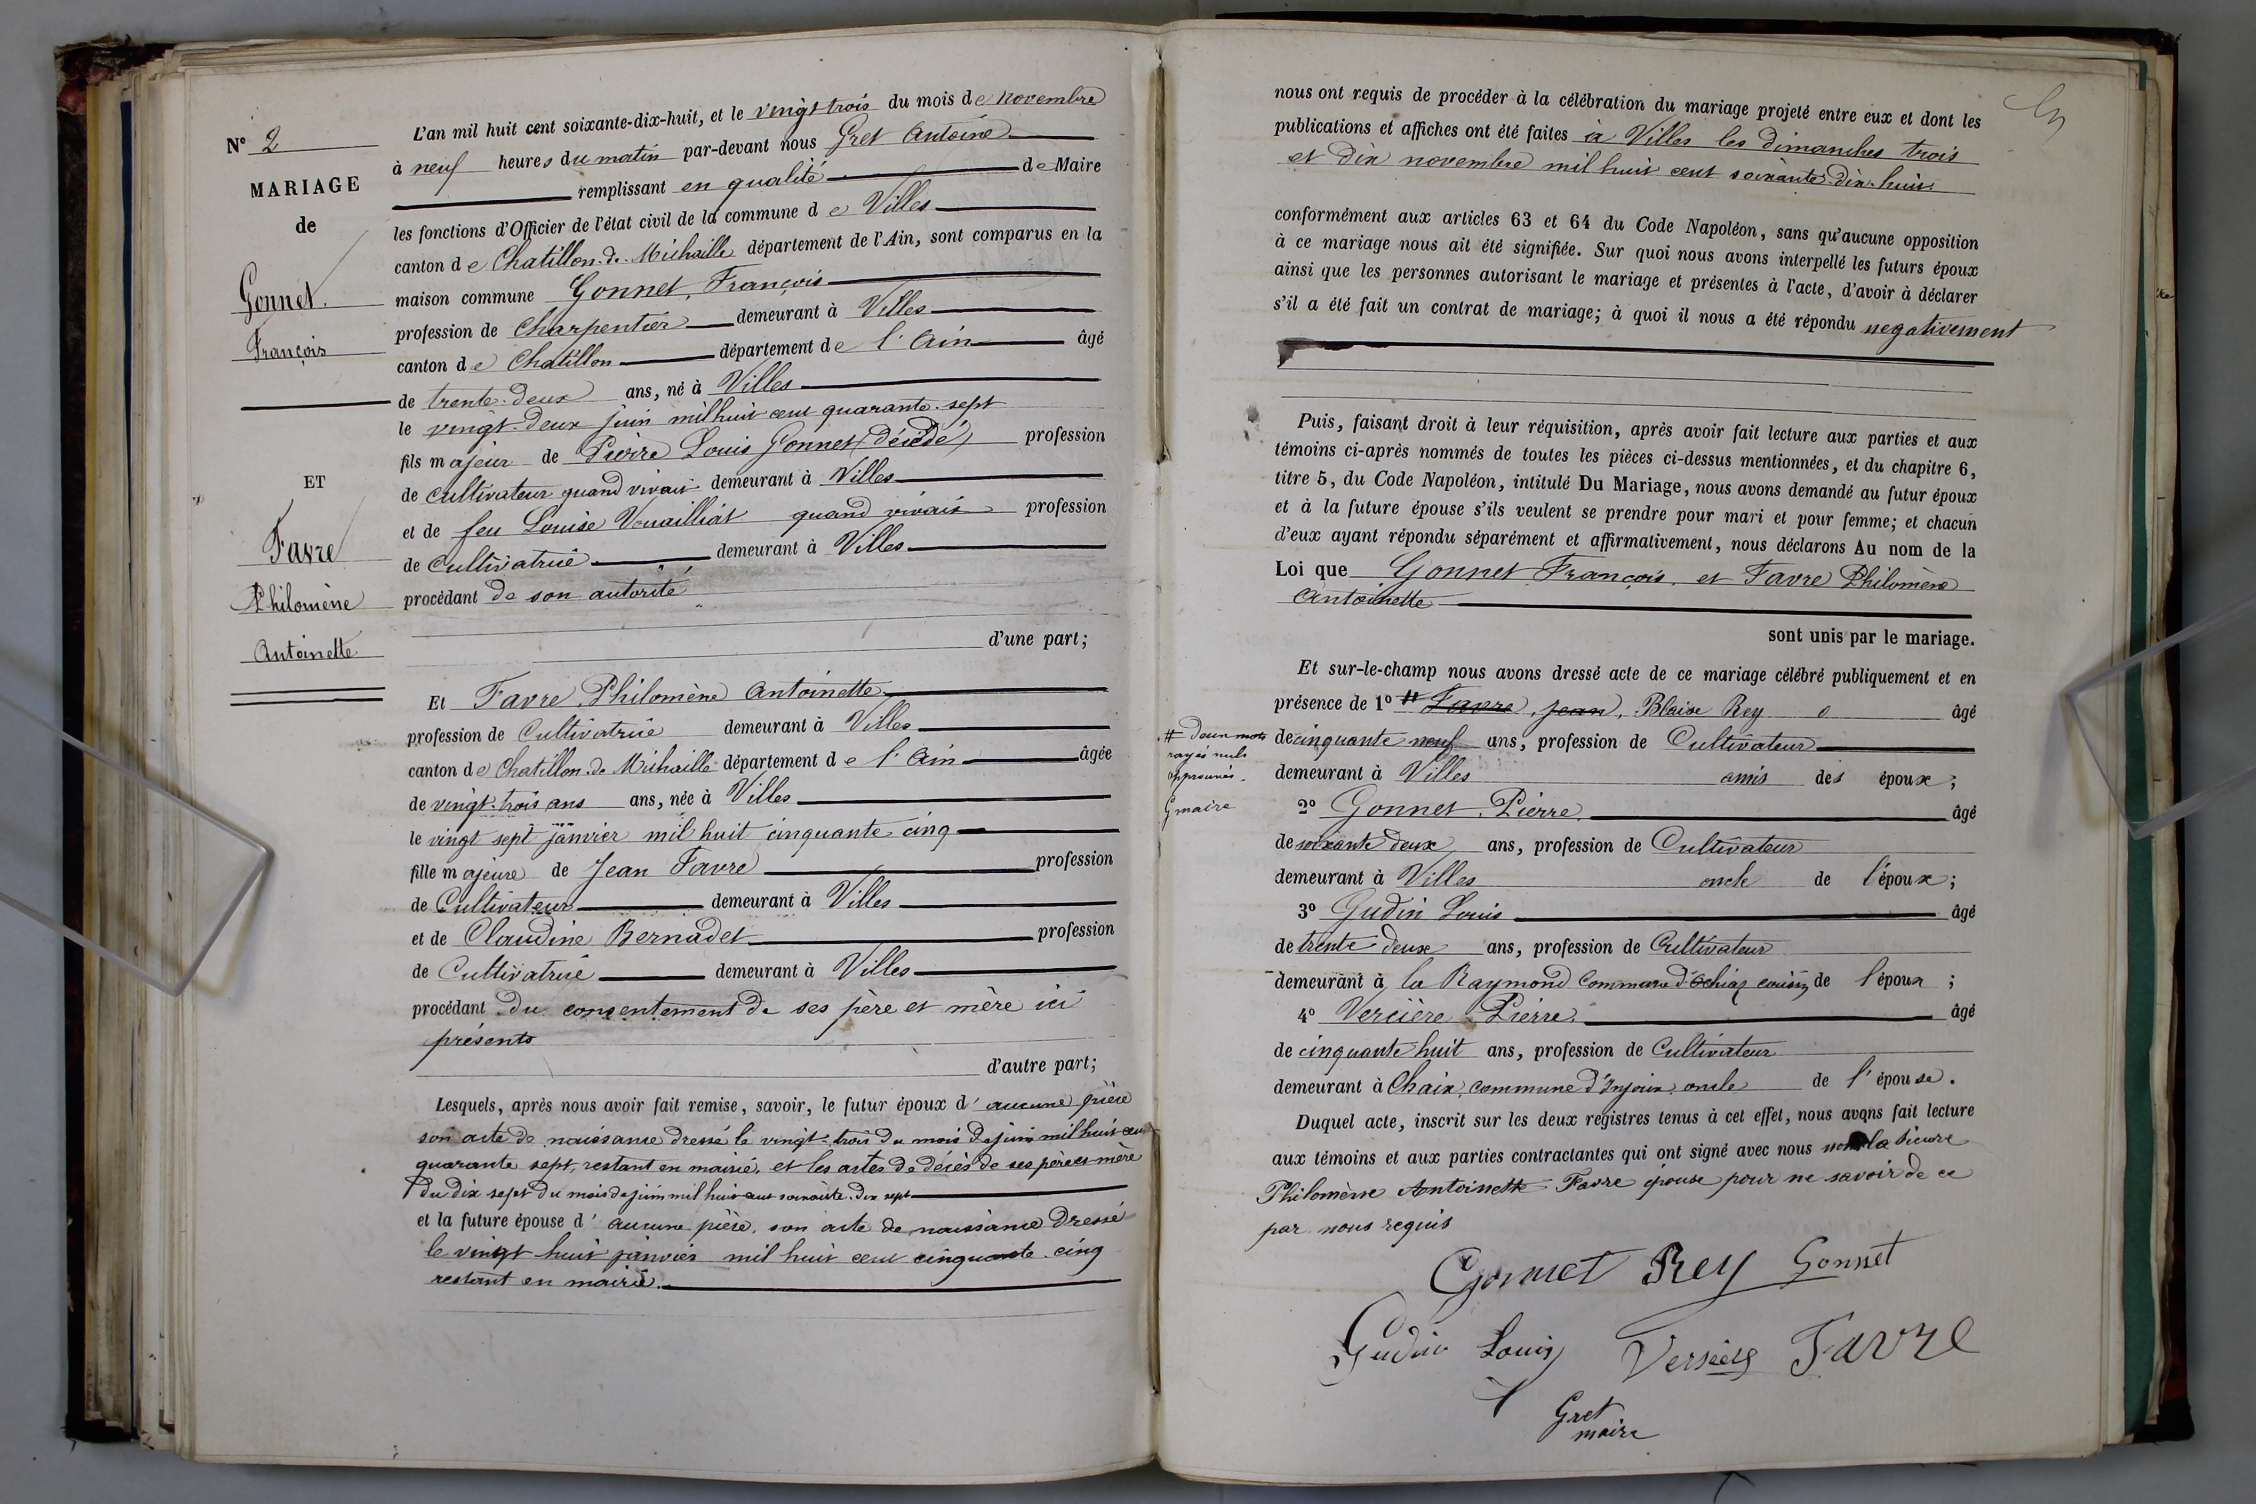 N° 2
MARIAGE
de
Gonnet
François
ET
Favre
Philomène
Antoinette
L'an mil huit cent soixante-dix-huit, et le vingt trois du mois de novembre
à neuf heures du matin par-devant nous Gret Antoine
remplissant en qualité de Maire
les fonctions d'Officier de l'état civil de la commune de Villes
canton de Chatillon-de-Michaille département de l'Ain, sont comparus en la
maison commune Gonnet, François
profession de Charpentier demeurant à Villes
canton de Chatillon département de l'Ain âgé
de trente-deux ans, né à Villes
le vingt-deux juin mil huit cent quarante-sept
fils majeur de Pierre Louis Gonnet (décédé) profession
de cultivateur quand vivait demeurant à Villes
et de feu Louise Vouailliat quand vivait profession
de Cultivatrice demeurant à Villes
procédant de son autorité
d'une part;
Et Favre, Philomène Antoinette
profession de Cultivatrice demeurant à Villes
canton de Chatillon-de-Michaille département de l'Ain âgée
de vingt-trois ans ans, née à Villes
le vingt sept janvier mil huit cinquante cinq
fille majeure de Jean Favre profession
de Cultivateur demeurant à Villes
et de Claudine Bernadet profession
de Cultivatrice demeurant à Villes
procédant du consentement de ses père et mère ici
présents
d'autre part;
Lesquels, après nous avoir fait remise, savoir, le futur époux d'aucune pièce
son acte de naissance dressé le vingt-trois du mois de juin mil huit cent
quarante sept, restant en mairie, et les actes de décès de ses père et mère
du dix sept du mois de juin mil huit cent soixante-dix sept
et la future épouse d'aucune pièce, son acte de naissance dressé
le vingt-huit janvier mil huit cent cinquante-cinq
restant en mairie.
nous ont requis de procéder à la célébration du mariage projeté entre eux et dont les
publications et affiches ont été faites à Villes les dimanches trois
et dix novembre mil huit cent soixante-dix-huit
conformément aux articles 63 et 64 du Code Napoléon, sans qu'aucune opposition
à ce mariage nous ait été signifiée. Sur quoi nous avons interpellé les futurs époux
ainsi que les personnes autorisant le mariage et présentes à l'acte, d'avoir à déclarer
s'il a été fait un contrat de mariage; à quoi il nous a été répondu negativement
Puis, faisant droit à leur réquisition, après avoir fait lecture aux parties et aux
témoins ci-après nommés de toutes les pièces ci-dessus mentionnées, et du chapitre 6,
titre 5, du Code Napoléon, intitulé Du Mariage, nous avons demandé au futur époux
et à la future épouse s'ils veulent se prendre pour mari et pour femme; et chacun
d'eux ayant répondu séparément et affirmativement, nous déclarons Au nom de la
Loi que Gonnet François et Favre Philomène
Antoinette
sont unis par le mariage.
Et sur-le-champ nous avons dressé acte de ce mariage célébré publiquement et en
présence de 1° # Favre, Jean, Blaise Rey âgé
de cinquante neuf ans, profession de Cultivateur
demeurant à Villes amis des époux;
2° Gonnet, Pierre âgé
de soixante deux ans, profession de Cultivateur
demeurant à Villes oncle de l'époux;
3° Gudin Louis âgé
de trente deux ans, profession de Cultivateur
demeurant à la Raymond Commune d'Ochiaz cousin de l'époux;
4° Vercière Pierre âgé
de cinquante huit ans, profession de Cultivateur
demeurant à Chaix, commune d'Injoux oncle de l'épouse.
Duquel acte, inscrit sur les deux registres tenus à cet effet, nous avons fait lecture
aux témoins et aux parties contractantes qui ont signé avec nous
Philomène Antoinette Favre épouse pour ne savoir de ce
par nous requis
# Deux mots
rayés nuls
approuvés.
G maire
Gonnet Rey Gonnet
Gudin Louis Versière Favre
Gret
maire